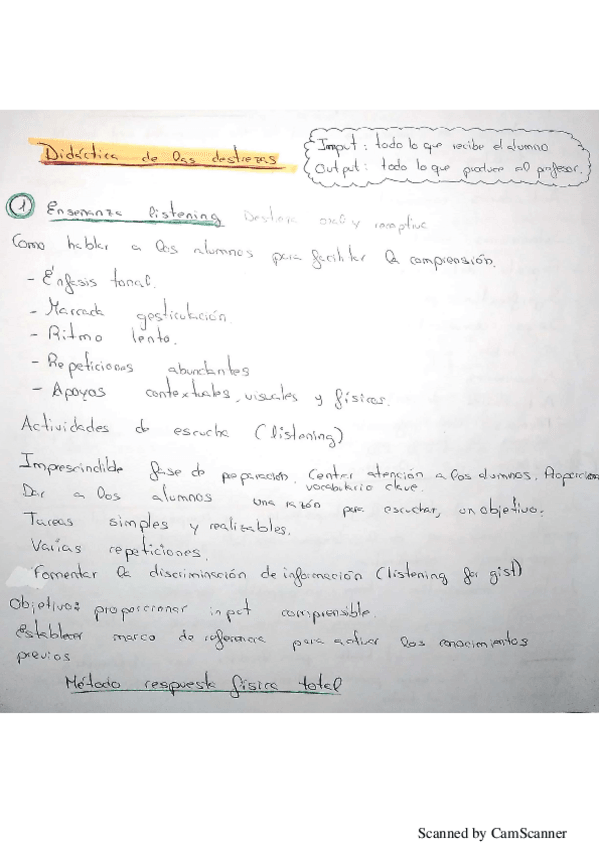 Didáctica de las destrezas
Imput: todo lo que recibe el alumno
Output: todo lo que produce el profesor.
1 Enseñanza listening Destreza oral y receptiva
Como hablar a los alumnos para facilitar la comprensión.
- Énfasis tonal.
- Marcada gesticulación
- Ritmo lento.
- Repeticiones abundantes
- Apoyos contextuales, visuales y físicos.
Actividades de escucha (listening)
Imprescindible fase de preparación. Centrar atención a los alumnos. Proporcionar
vocabulario clave.
Dar a los alumnos una razón para escuchar, un objetivo.
Tareas simples y realizables.
Varias repeticiones.
Fomentar la discriminación de información (listening for gist)
Objetivo: proporcionar input comprensible.
Establecer marco de referencia para activar los conocimientos
previos
Método respuesta física total
Scanned by CamScanner